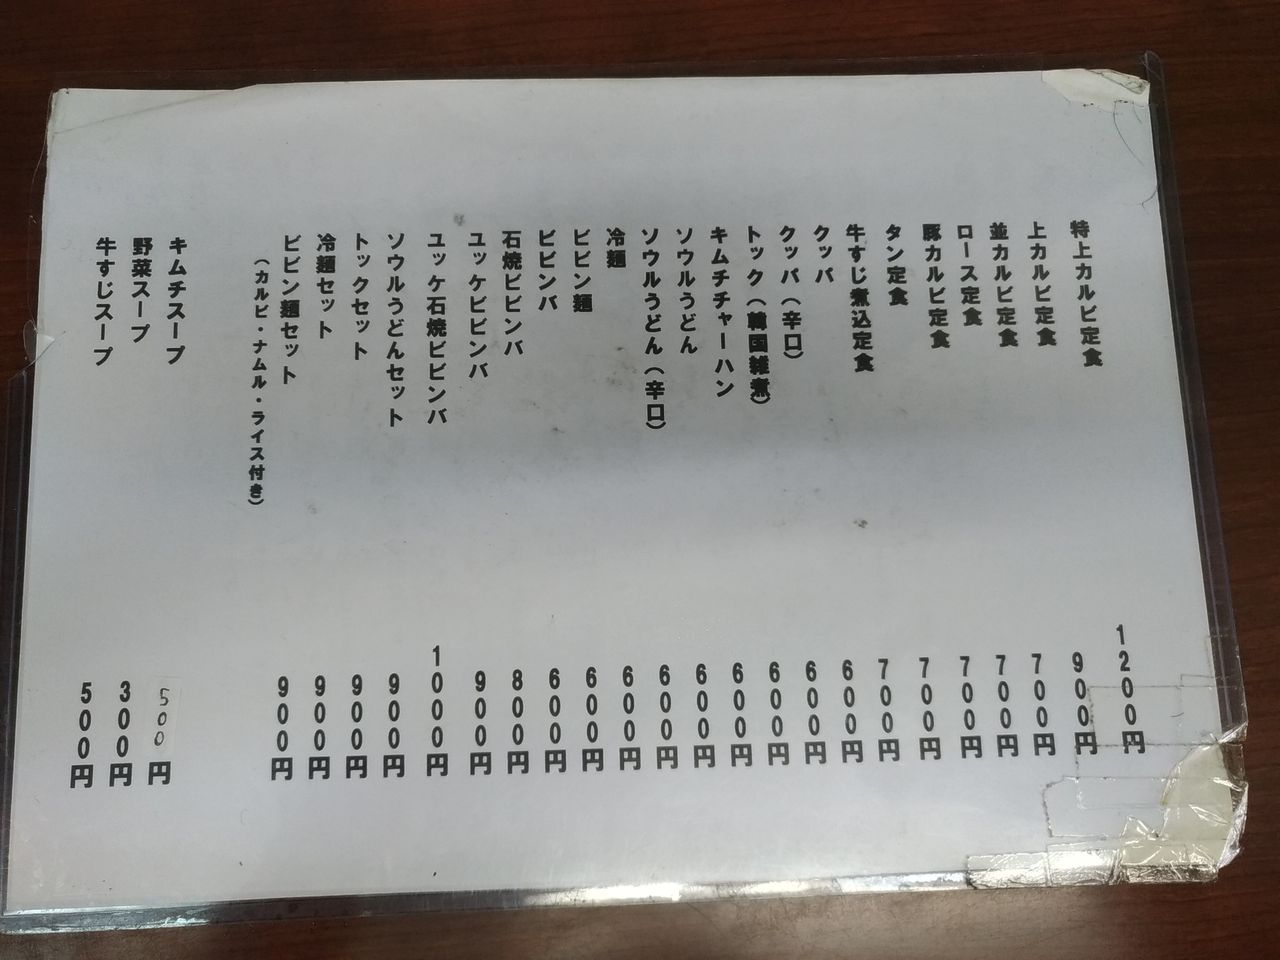 特上カルビ定食 1200円
上カルビ定食 900円
並カルビ定食 700円
ロース定食 700円
豚カルビ定食 700円
タン定食 700円
牛すじ煮込定食 700円
クッパ 600円
クッパ（辛口） 600円
トック（韓国雑煮） 600円
キムチチャーハン 600円
ソウルうどん 600円
ソウルうどん（辛口） 600円
冷麺 600円
ビビン麺 600円
ビビンバ 600円
石焼ビビンバ 800円
ユッケビビンバ 900円
ユッケ石焼ビビンバ 1000円
ソウルうどんセット 900円
トックセット 900円
冷麺セット 900円
ビビン麺セット 900円
（カルビ・ナムル・ライス付き）
キムチスープ 500円
野菜スープ 300円
牛すじスープ 500円